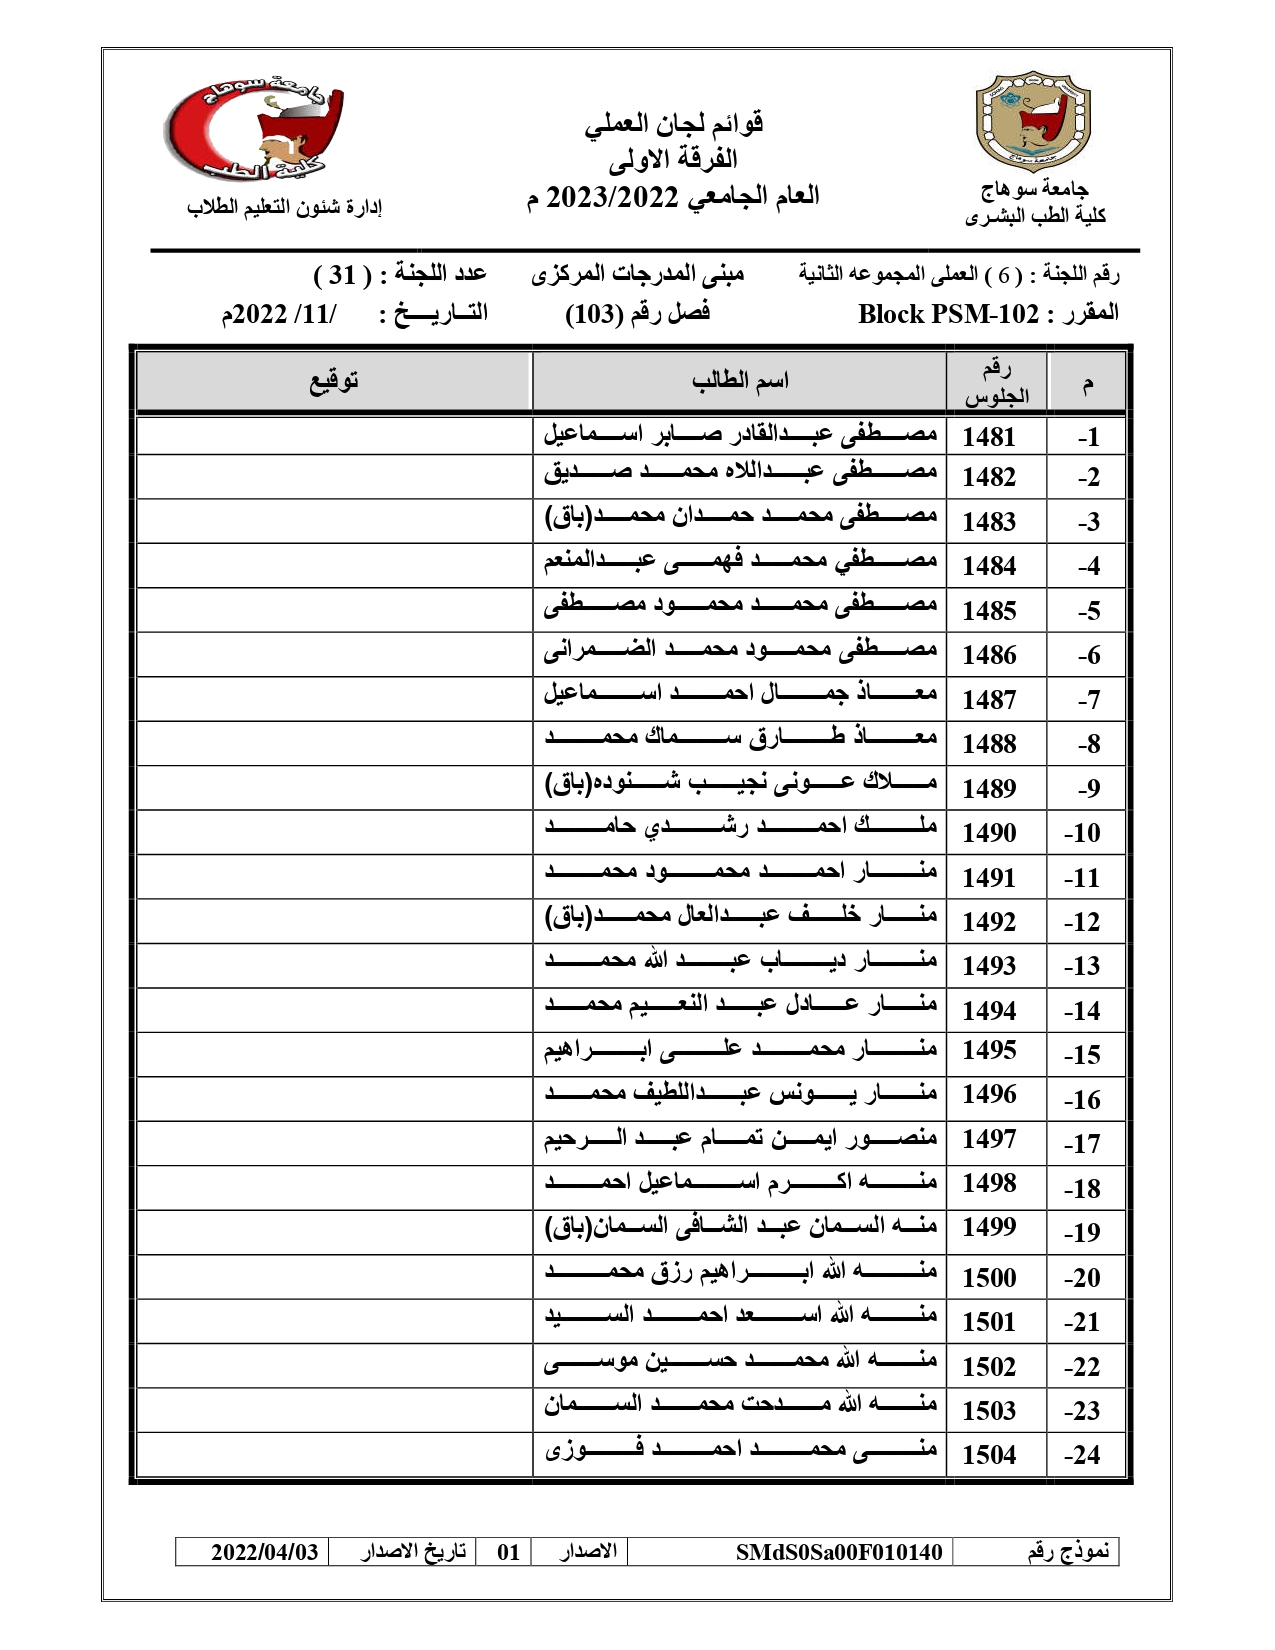 جامعة سوهاج
كلية الطب البشرى
قوائم لجان العملي
الفرقة الاولى
العام الجامعي 2023/2022 م
جامعة سوهاج
كلية الطب
إدارة شئون التعليم الطلاب
رقم اللجنة : ( 6 ) العملى المجموعه الثانية مبنى المدرجات المركزى عدد اللجنة : ( 31 )
المقرر : Block PSM-102 فصل رقم (103) التـاريـــخ : /11/ 2022م
م رقم الجلوس اسم الطالب توقيع
1- 1481 مصطفى عبدالقادر صابر اسماعيل
2- 1482 مصطفى عبداللاه محمد صديق
3- 1483 مصطفى محمد حمدان محمد(باق)
4- 1484 مصطفي محمد فهمى عبدالمنعم
5- 1485 مصطفى محمد محمود مصطفى
6- 1486 مصطفى محمود محمد الضمرانى
7- 1487 معاذ جمال احمد اسماعيل
8- 1488 معاذ طارق سماك محمد
9- 1489 ملاك عونى نجيب شنوده(باق)
10- 1490 ملك احمد رشدي حامد
11- 1491 منار احمد محمود محمد
12- 1492 منار خلف عبدالعال محمد(باق)
13- 1493 منار دياب عبد الله محمد
14- 1494 منار عادل عبد النعيم محمد
15- 1495 منار محمد على ابراهيم
16- 1496 منار يونس عبداللطيف محمد
17- 1497 منصور ايمن تمام عبد الرحيم
18- 1498 منه اكرم اسماعيل احمد
19- 1499 منه السمان عبد الشافى السمان(باق)
20- 1500 منه الله ابراهيم رزق محمد
21- 1501 منه الله اسعد احمد السيد
22- 1502 منه الله محمد حسين موسى
23- 1503 منه الله مدحت محمد السمان
24- 1504 منى محمد احمد فوزى
نموذج رقم SMdS0Sa00F010140 الاصدار 01 تاريخ الاصدار 2022/04/03